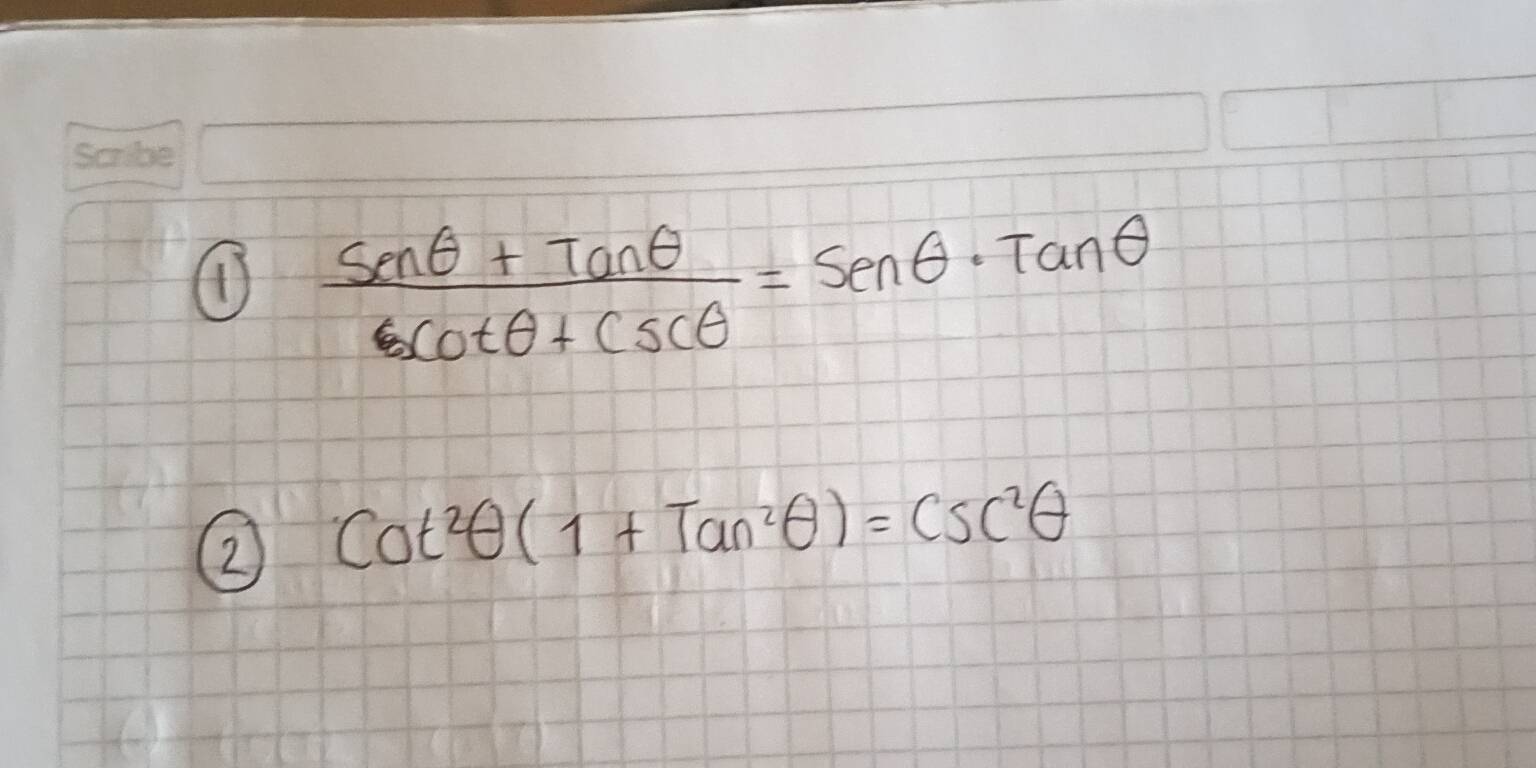 Scribe
① (Senθ + Tanθ)/(Cotθ + Cscθ) = Senθ · Tanθ
② Cot²θ(1 + Tan²θ) = Csc²θ